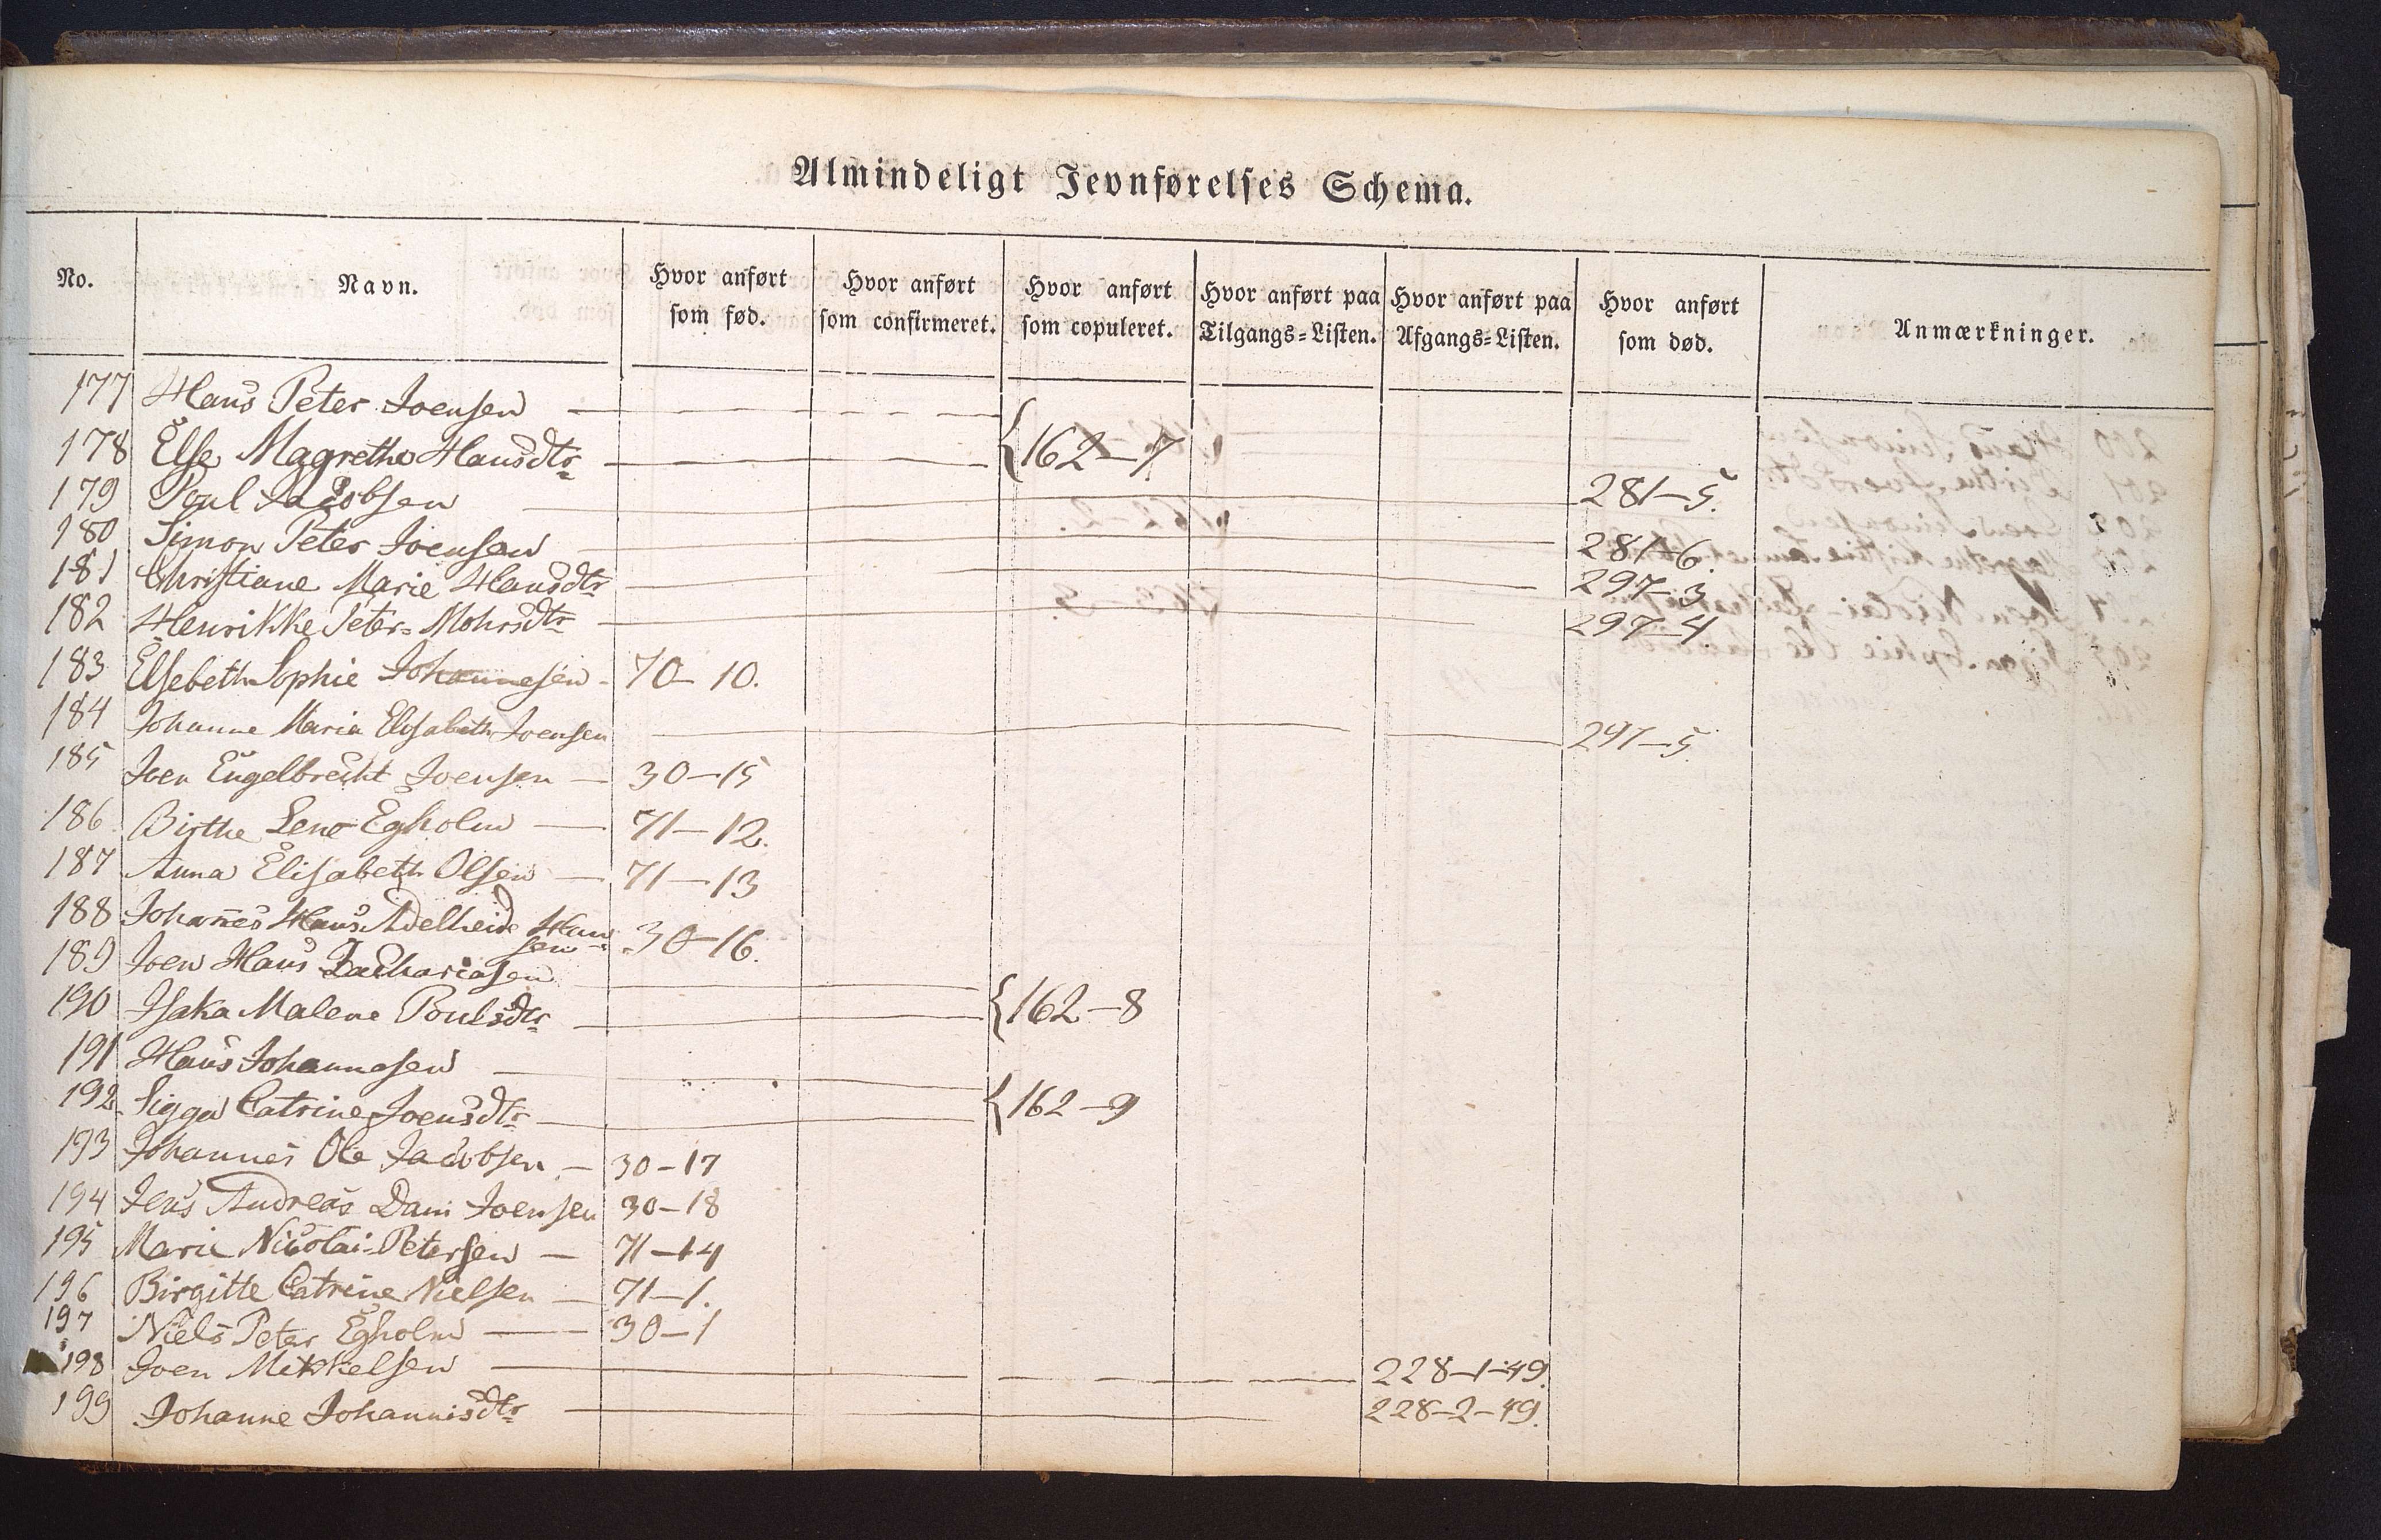 Almindeligt Jevnførelses Schema.
No. Navn. Hvor anført som fød. Hvor anført som confirmeret. Hvor anført som copuleret. Hvor anført paa Tilgangs=Listen. Hvor anført paa Afgangs=Listen. Hvor anført som død. Anmærkninger.
177 Hans Peter Joensen
178 Else Magrethe Hansdtr { 162–7
179 Poul Jacobsen 281–5.
180 Simon Peter Joensen 281–6.
181 Christiane Marie Hansdtr 297–3
182 Henrikke Peter=Mohrsdtr 297–4
183 Elsebeth Sophie Johannesen 70–10.
184 Johanne Maria Elisabeth Joensen 297–5.
185 Joen Engelbrecht Joensen — 30–15
186 Birthe Lene Egholm — 71–12.
187 Anna Elisabeth Olsen — 71–13
188 Johannes Hans Adelheid Hansen 30–16.
189 Joen Hans Zachariasen
190 Isaka Malene Poulsdtr { 162–8
191 Hans Johannesen
192 Sigga Catrine Joensdtr { 162–9
193 Johannes Ole Jacobsen — 30–17
194 Jens Andreas Dam Joensen 30–18
195 Marie Nicolai=Petersen — 71–14
196 Birgitte Catrine Nielsen — 71–1.
197 Niels Peter Egholm — 30–1
198 Joen Mikkelsen 228–1–49.
199 Johanne Johannisdtr 228–2–49.